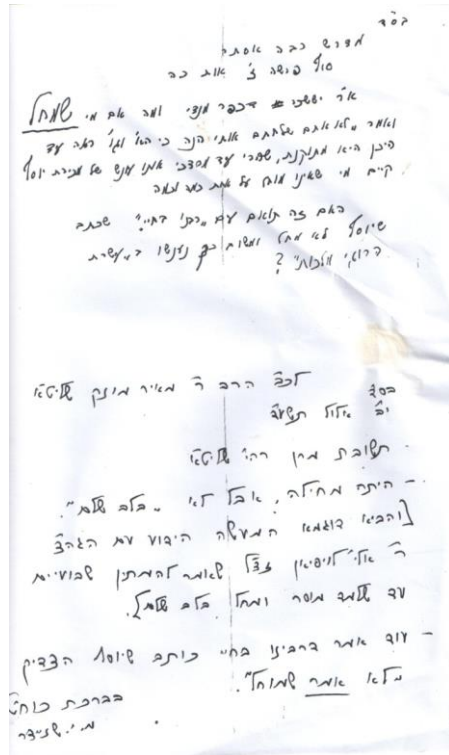 בס"ד
מדרש רבה אסתר
סוף פרשה ז' אות כה
א"ר יששכר דכפר מנדי ומה אם מי שמחל
ואמר "לא אתם שלחתם אותי הנה כי הא' וגו' ראה עד
היכן היא מתוקנת, שהרי עד מרדכי אנו עונש של מכירת יוסף
קיים מי שאינו מוחל על אחת כמה וכמה
האם זה תואם עם "רבנו בחיי" שכתב
שיוסף לא מחל ומשום כך נענשו בעשרת
הרוגי מלכות" ?
לכב' הרב ר' מאיר מוזק שליט"א
בס"ד
יב' אלול תשע"ד
תשובת מרן רה"י שליט"א
- היתה מחילה, אבל לא "בלב שלם".
[והביא דוגמא המעשה הידוע עם הגה"צ
ר' אלי' לופיאן זצ"ל שאומר להמתין שבועיים
עד שלמד מוסר ומחל בלב שלם].
- עוד אמר דרבינו בחיי כותב שיוסף הצדיק
"לא אמר שמוחל".
בברכת כוח"ט
מ.י. שניידר